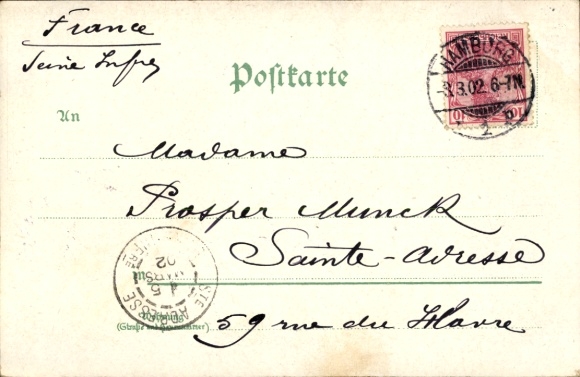 France
Seine Infre
Postkarte
HAMBURG
-3.3.02. 6-7N.
10 10
2
An
Madame
Prosper Munck
Sainte-Adresse
in
STE ADRESSE
MARS
02
Wohnung
(Straße und Hausnummer)
59 rue du Havre